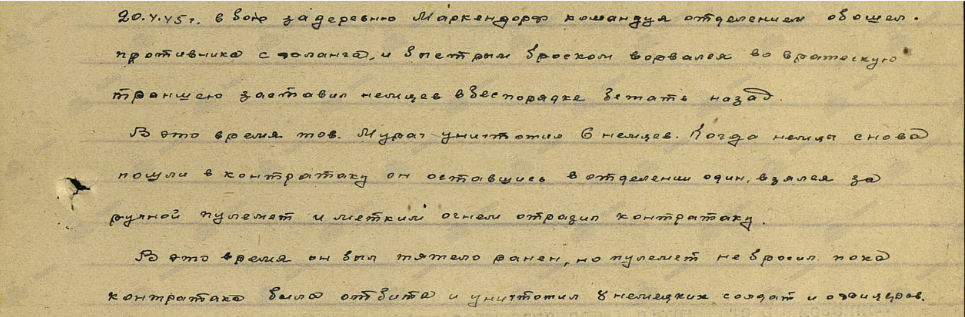 20.4.45г. в бою за деревню Маркендорф командуя отделением обошел
противника с фланга, и быстрым броском ворвался во вражескую
траншею заставил немцев в беспорядке бежать назад.
В это время тов. Мурат уничтожил 6 немцев. Когда немцы снова
пошли в контратаку он оставшись в отделении один, взялся за
ручной пулемет и метким огнем отразил контратаку.
В это время он был тяжело ранен, но пулемет не бросил пока
контратака была отбита и уничтожил 8 немецких солдат и офицеров.